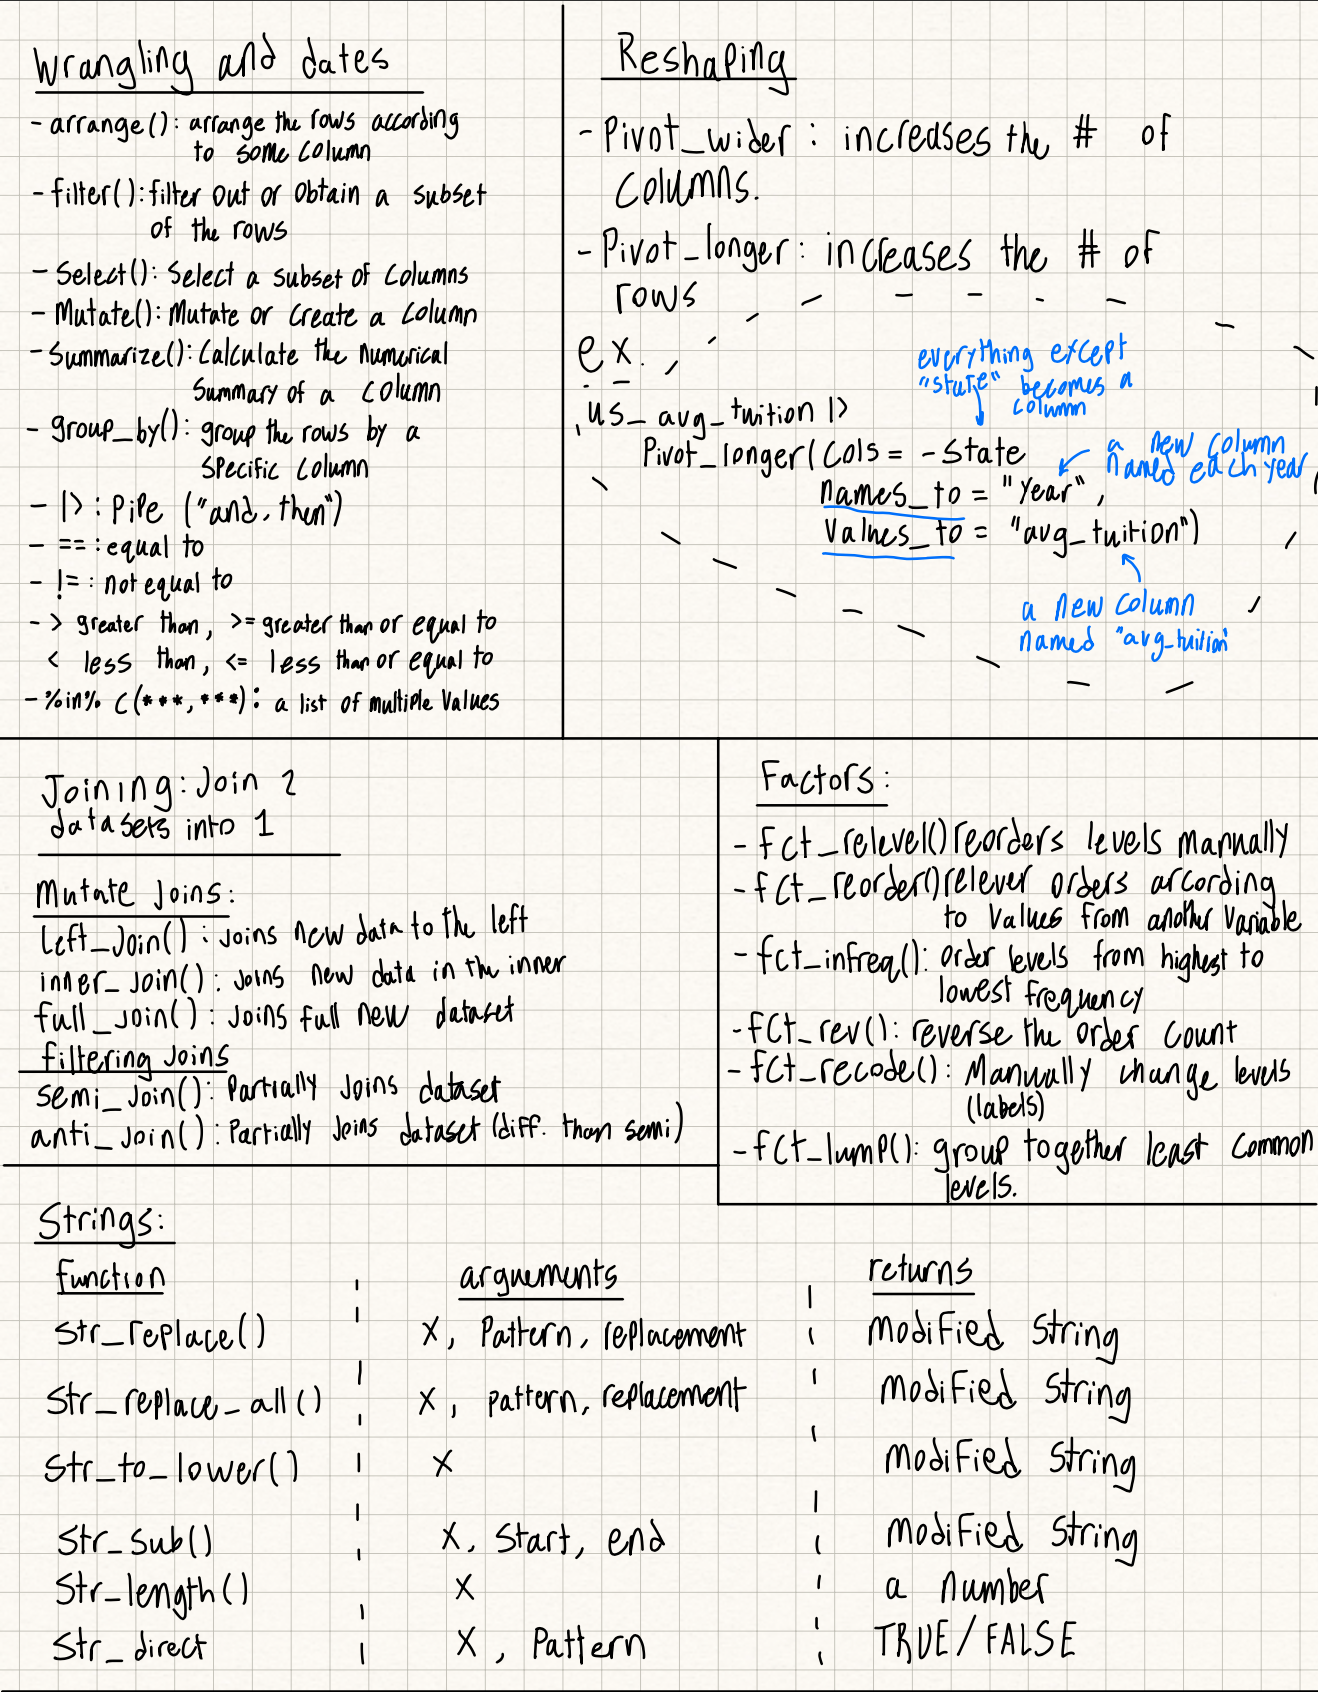 Wrangling and dates
- arrange(): arrange the rows according
to some column
- filter(): filter out or obtain a subset
of the rows
- Select(): Select a subset of columns
- Mutate(): Mutate or create a column
- Summarize(): Calculate the numerical
Summary of a column
- group_by(): group the rows by a
specific column
- |> : PiPe ("and, then")
- == : equal to
- != : not equal to
- > greater than, >= greater than or equal to
< less than, <= less than or equal to
- %in% c(***,***): a list of multiple values
Reshaping
- Pivot_wider : increases the # of
columns.
- Pivot_longer: increases the # of
rows
ex.
everything except
"state" becomes a
column
us_avg_tuition |>
Pivot_longer(cols = -state
a new column
named each year
names_to = "Year",
Values_to = "avg_tuition")
a new column
named "avg_tuition"
Joining: Join 2
datasets into 1
Mutate Joins:
left_join() : joins new data to the left
inner_join() : joins new data in the inner
full_join() : joins full new dataset
filtering Joins
semi_join(): Partially joins dataset
anti_join() : Partially joins dataset (diff. than semi)
Factors:
- fct_relevel() reorders levels manually
- fct_reorder() relever orders according
to values from another variable
- fct_infreq(): order levels from highest to
lowest frequency
- fct_rev(): reverse the order count
- fct_recode(): Manually change levels
(labels)
- fct_lump(): group together least common
levels.
Strings:
function arguements returns
Str_replace() X, Pattern, replacement modified string
Str_replace_all() X, pattern, replacement modified string
Str_to_lower() X modified string
Str_sub() X, Start, end modified string
Str_length() X a number
Str_direct X, Pattern TRUE/FALSE